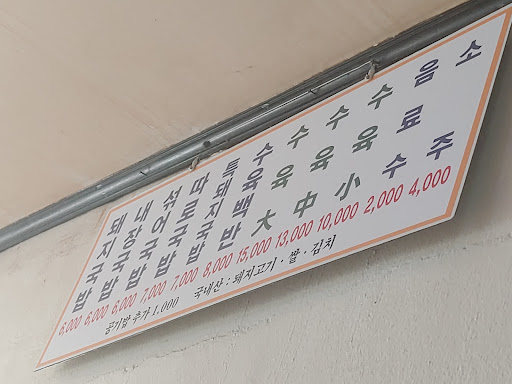 돼지국밥 6,000
내장국밥 6,000
섞어국밥 6,000
따로국밥 7,000
특돼지국밥 7,000
수육백반 8,000
수육大 15,000
수육中 13,000
수육小 10,000
음료수 2,000
소주 4,000
공기밥 추가 1,000 국내산 : 돼지고기 · 쌀 · 김치